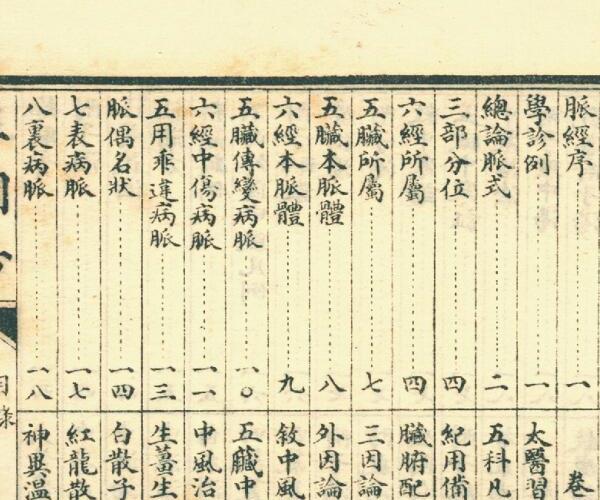 脈經序 一
學診例 一
總論脈式 二
三部分位 四
六經所屬 四
五臟所屬 七
五臟本脈體 八
六經本脈體 九
五臟傳變病脈 一〇
六經中傷病脈 一一
五用乖違病脈 一三
脈偶名狀 一四
七表病脈 一七
八裏病脈 一八
卷
太醫習
五科凡
紀用備
臟腑配
三因論
外因論
敘中風
五臟中
中風治
生薑生
白散子
紅龍散
神異溫